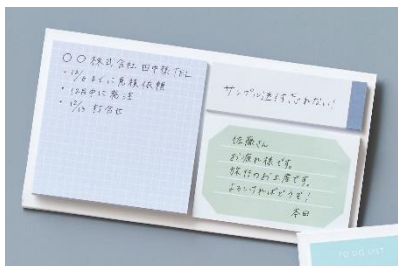 〇〇株式会社 田中様 TEL
・12/6までに見積依頼
・12月中に発注
・12/13 打合せ
サンプル送付忘れない!
佐藤さん
お疲れ様です。
旅行のお土産です。
よろしければどうぞ!
本田
TO DO LIST